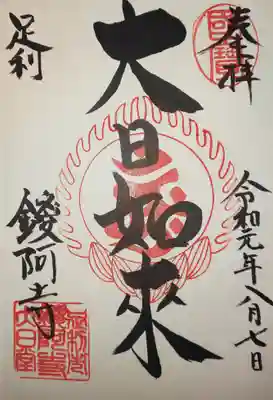 奉拝
國寶
令和元年八月七日
大日如來
足利
鑁阿寺